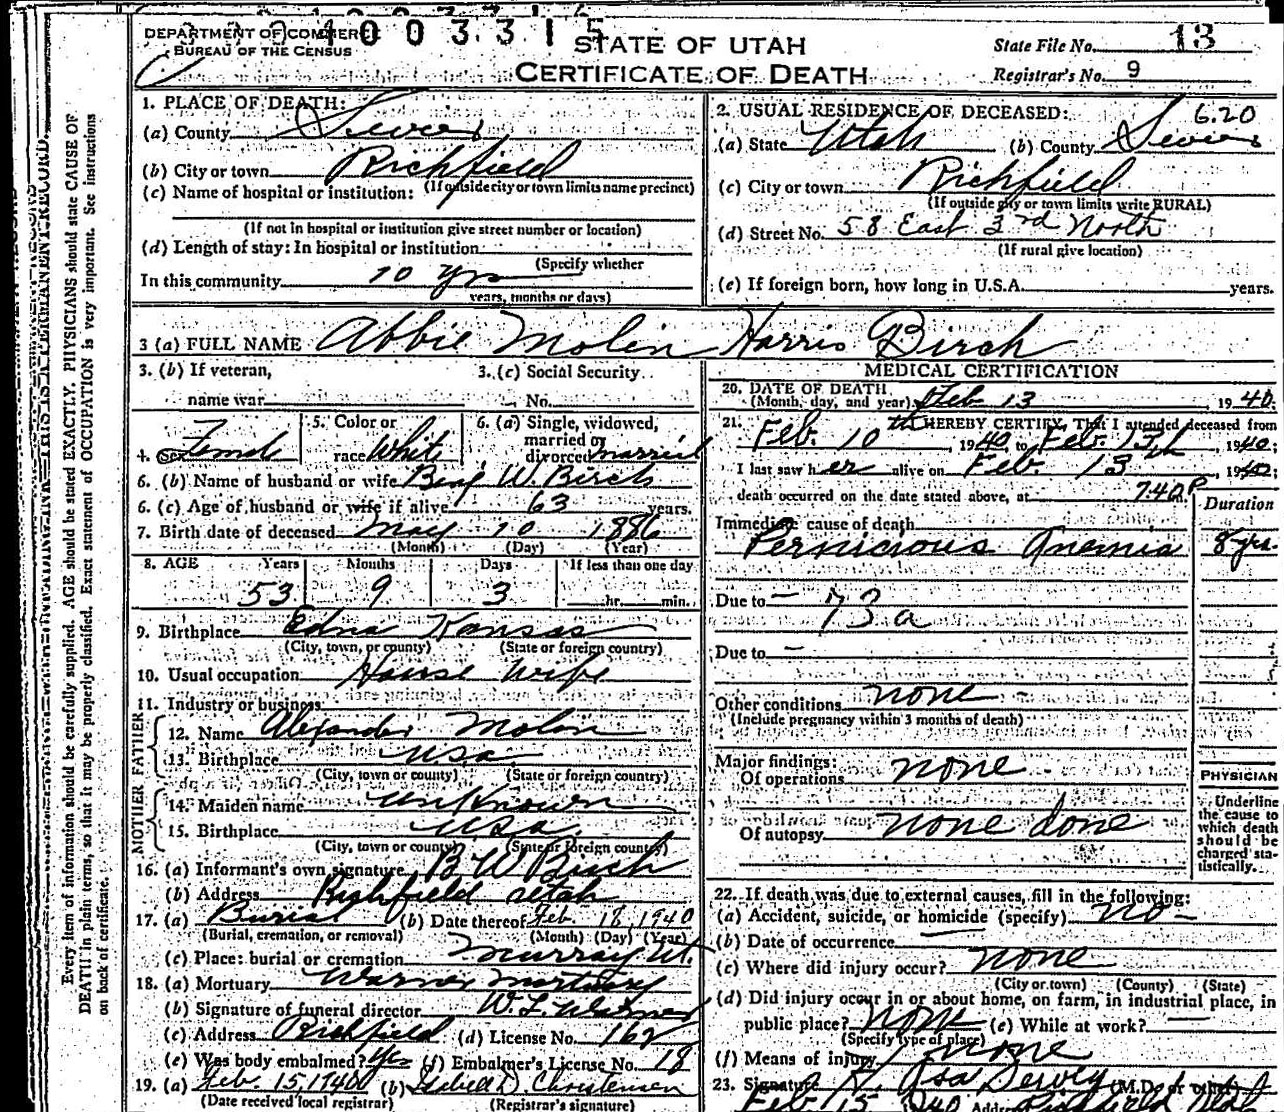 DEPARTMENT OF COMMERCE
BUREAU OF THE CENSUS
STATE OF UTAH
CERTIFICATE OF DEATH
State File No. 13
Registrar's No. 9
1. PLACE OF DEATH:
(a) County Sevier
(b) City or town Richfield
(If outside city or town limits name precinct)
(c) Name of hospital or institution:
(If not in hospital or institution give street number or location)
(d) Length of stay: In hospital or institution
(Specify whether
In this community 10 yrs
years, months or days)
2. USUAL RESIDENCE OF DECEASED: 6.20
(a) State Utah (b) County Sevier
(c) City or town Richfield
(If outside city or town limits write RURAL)
(d) Street No. 58 East 3rd North
(If rural give location)
(e) If foreign born, how long in U.S.A. years.
3 (a) FULL NAME Abbie Molin Harris Birch
3. (b) If veteran,
name war
3. (c) Social Security
No.
4. Sex Female
5. Color or
race White
6. (a) Single, widowed,
married or
divorced married
6. (b) Name of husband or wife Benj W. Birch
6. (c) Age of husband or wife if alive 63 years.
7. Birth date of deceased May 10 1886
(Month) (Day) (Year)
8. AGE Years Months Days If less than one day
53 9 3 hr. min.
9. Birthplace Edna Kansas
(City, town, or county) (State or foreign country)
10. Usual occupation House Wife
11. Industry or business
FATHER
12. Name Alexander Molin
13. Birthplace U.S.a.
(City, town or county) (State or foreign country)
MOTHER
14. Maiden name unknown
15. Birthplace U.S.a.
(City, town or county) (State or foreign country)
16. (a) Informant's own signature B W Birch
(b) Address Richfield Utah
17. (a) Burial (b) Date thereof Feb. 18, 1940
(Burial, cremation, or removal) (Month) (Day) (Year)
(c) Place: burial or cremation Murray Ut.
18. (a) Mortuary Warner Mortuary
(b) Signature of funeral director W. L. Warner
(c) Address Richfield (d) License No. 162
(e) Was body embalmed? Yes (f) Embalmer's License No. 18
19. (a) Feb. 15, 1940 (b) Christensen
(Date received local registrar) (Registrar's signature)
MEDICAL CERTIFICATION
20. DATE OF DEATH
(Month, day, and year) Feb 13 1940.
21. I HEREBY CERTIFY, That I attended deceased from
Feb. 10th 1940, to Feb. 13th, 1940.
I last saw her alive on Feb. 13, 1940.
death occurred on the date stated above, at 7:40 P
Duration
Immediate cause of death
Pernicious Anemia 8 yrs.
Due to — 73 a
Due to —
Other conditions none -
(Include pregnancy within 3 months of death)
Major findings:
Of operations none -
Of autopsy none done
PHYSICIAN
Underline
the cause to
which death
should be
charged sta-
tistically.
22. If death was due to external causes, fill in the following:
(a) Accident, suicide, or homicide (specify) no -
(b) Date of occurrence
(c) Where did injury occur? none
(City or town) (County) (State)
(d) Did injury occur in or about home, on farm, in industrial place, in
public place? none (e) While at work?
(Specify type of place)
(f) Means of injury none
23. Signature Asa Dewey (M.D. or other)
Feb 15 1940 Address Richfield Utah
Every item of information should be carefully supplied. AGE should be stated EXACTLY. PHYSICIANS should state CAUSE OF
DEATH in plain terms, so that it may be properly classified. Exact statement of OCCUPATION is very important. See instructions
on back of certificate.